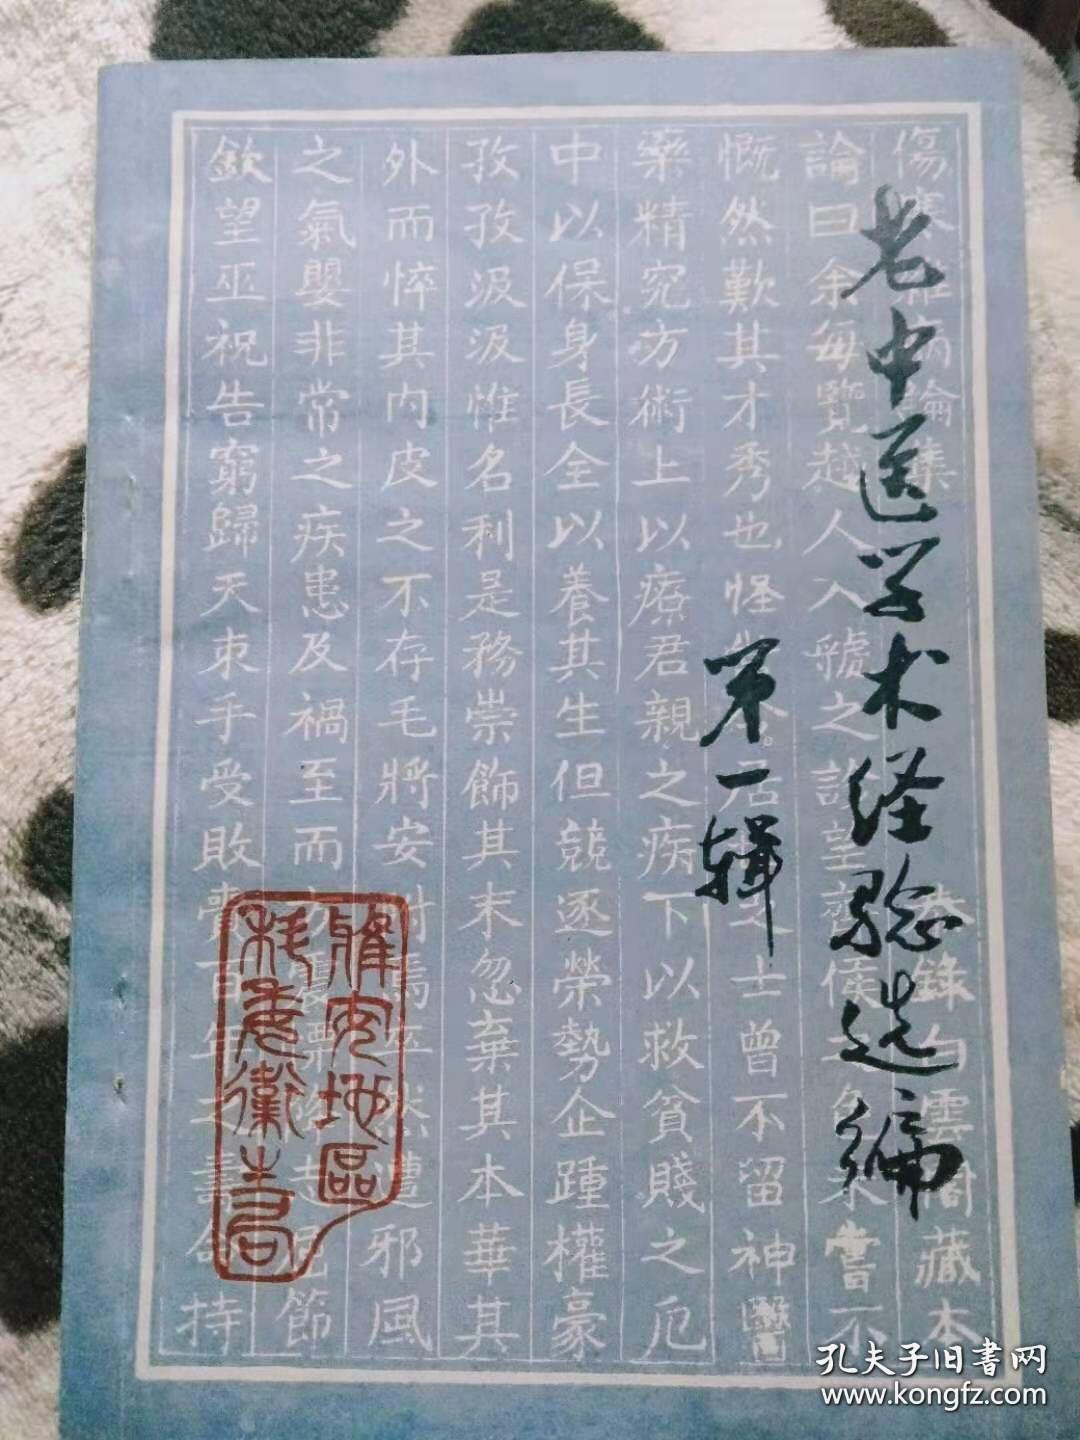 老中医学术经验选编
第一辑
傷寒雜病論集 錄白雲閣藏本
論曰余每覽越人入虢之診望齊侯之色未嘗不
慨然歎其才秀也怪 居世之士曾不留神醫
藥精究方術上以療君親之疾下以救貧賤之厄
中以保身長全以養其生但競逐榮勢企踵權豪
孜孜汲汲惟名利是務崇飾其末忽棄其本華其
外而悴其内皮之不存毛將安附焉卒然遭邪風
之氣嬰非常之疾患及禍至而方震慄降志屈節
欽望巫祝告窮歸天束手受敗 百年之壽命持
雅安地區
科委衛
孔夫子旧書网
www.kongfz.com